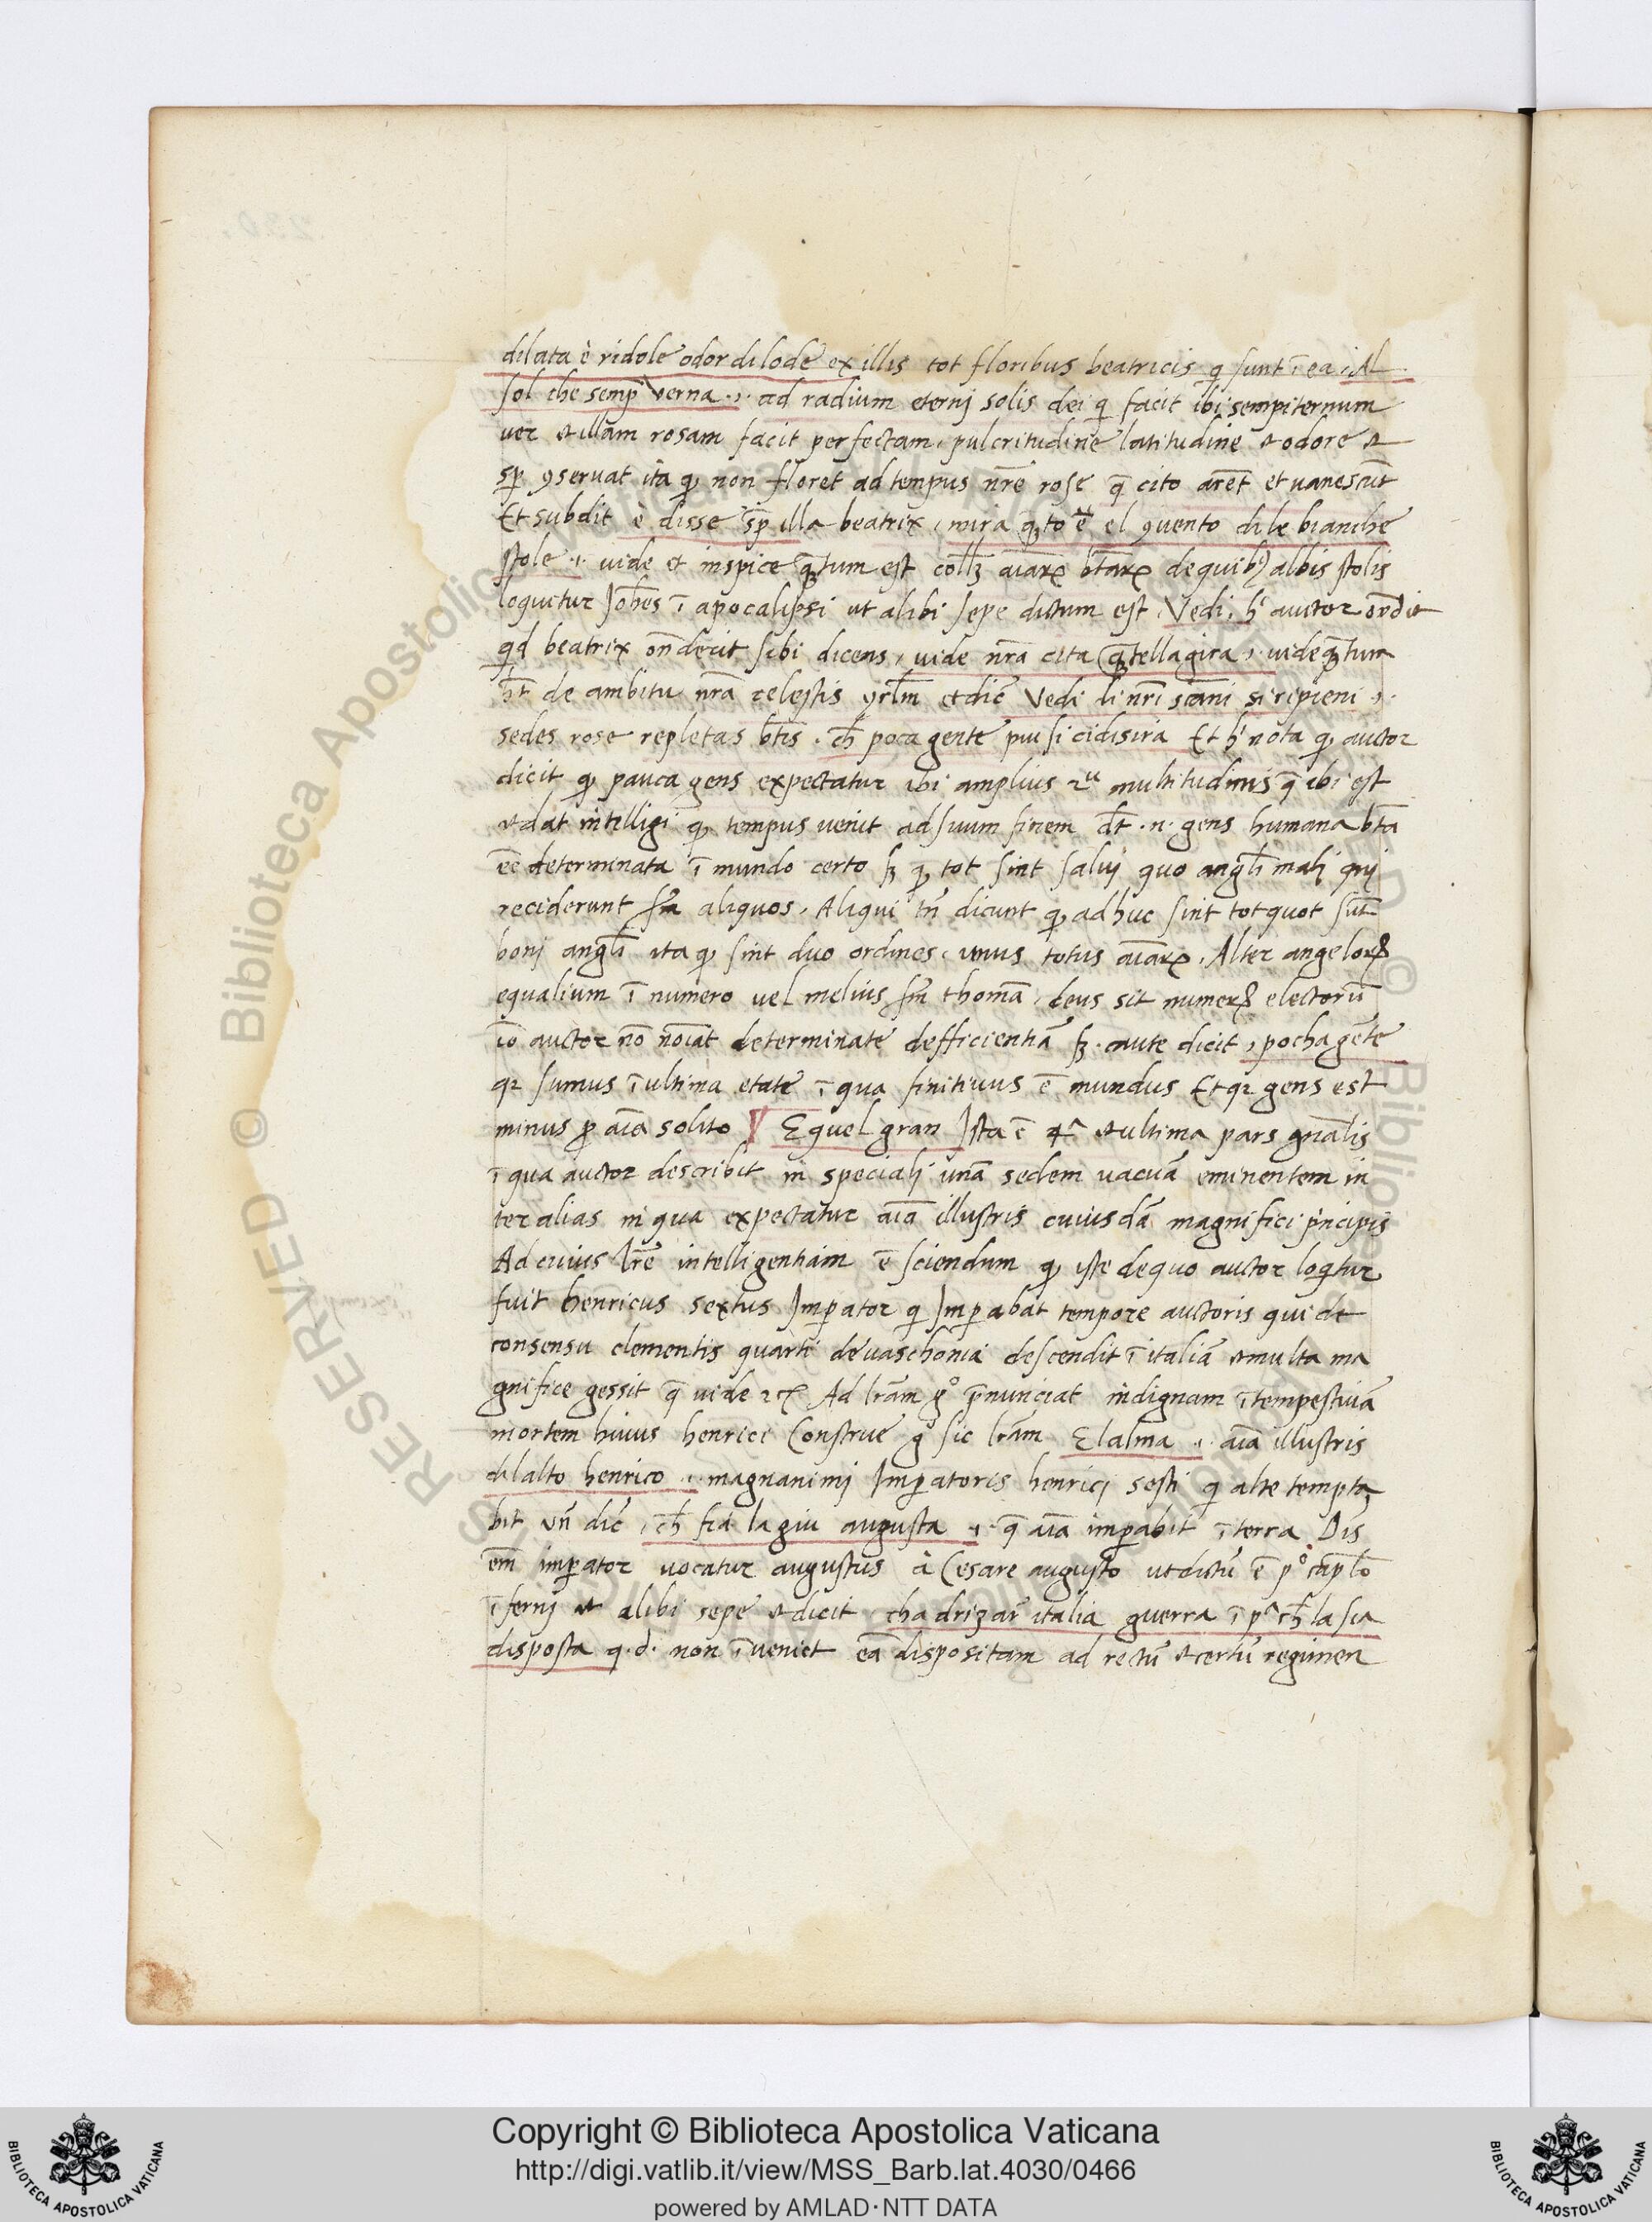 dilata è ridole odor di lode ex illis tot floribus beatricis q̄ sunt ī ea. Al
sol che semp̄ verna .i. ad radium eternj solis dei q̄ facit ibi sempiternum
uer et illam rosam facit perfectam, pulcritudine latitudine et odore et
sp̄ ꝯseruat ita ꝙ non floret ad tempus nr̄e rose q̄ cito arēt et uanescūt
Et subdit è disse sp̄ illa beatrix, mira q̄to ē el ꝯuento di le bianche
stole .i. uide et inspice q̄tum est coll̄ aīaꝝ bt̄aꝝ de quibꝫ albis stolis
loquitur Joh̄es ī apocalipsi ut alibi sepe dictum est, Vedi, h̄ auctor
qd beatrix ōndecit sibi dicens, uide nr̄a cita q̄tella gira .i. uide q̄tum
h̄t de ambitu nr̄a celestis yrl̄m et dic̄ Vedi li nr̄i scāni si ripieni .i.
sedes rose repletas bt̄is. ch̄ poca gente piu si ci disira Et h̄ nota ꝙ auctor
dicit ꝙ pauca gens expectatur ibi amplius rᵘ multitudinis q̄ ibi est
et dat intelligi ꝙ tempus uenit ad suum finem dt̄ .n. gens humana bt̄a
eē determinata ī mundo certo sꝫ ꝙ tot sint saluj quo angl̄i malj qui
reciderunt s̄m aliquos, Aliqui tn̄ dicunt ꝙ adhuc sint tot quot sūt
bonj angl̄i ita ꝙ sint duo ordines, unus totus aīaꝝ, Alter angeloꝝ
equalium ī numero uel melius s̄m thomā, deus sit numerꝫ electorū
iō auctor nō noīat determinate defficientiā sꝫ caute dicit, pocha gēte
qꝛ sumus ī ultima etate ī qua finitiuus ē mundus Et qꝛ gens est
minus ꝓ aīa solito ¶ E quel gran Ista ē 4ᵃ et ultima pars gn̄alis
ī qua auctor describit in specialj unā sedem uacuā eminentem in
ter alias in qua expectatur aīa illustris cuiusdā magnifici pr̄incipis
Ad cuius lr̄e intelligentiam ē sciendum ꝙ iste de quo auctor loq̄tur
fuit henricus sextus Imꝑator q̄ Imꝑabat tempore auctoris qui de
consensu clementis quarti de uaschonia descendit ī italiā et multa ma
gnifice gessit q̄ uide Ad lr̄am gᵒ p̄nunciat indignam ītempestiuā
mortem huius henrici Construe gᵒ sic lr̄am E lalma .i. aīa illustris
dilalto henrico .i. magnanimj Imꝑatoris henricj sesti q̄ alte tempta
bit un̄ dic̄, ch̄ fia la giu augusta .i. q̄ aīa imꝑabit ī terra Ois
em̄ imꝑator uocatur augustus à Cesare augusto ut dictū ē pᵒ cap̄lo
īfernj et alibi sepe et dicit cha drizar italia guerra ī pᵃ ch̄ la sia
disposta q.d. non īueniet eā dispositam ad rectū et certū regimen
Copyright © Biblioteca Apostolica Vaticana
http://digi.vatlib.it/view/MSS_Barb.lat.4030/0466
powered by AMLAD·NTT DATA